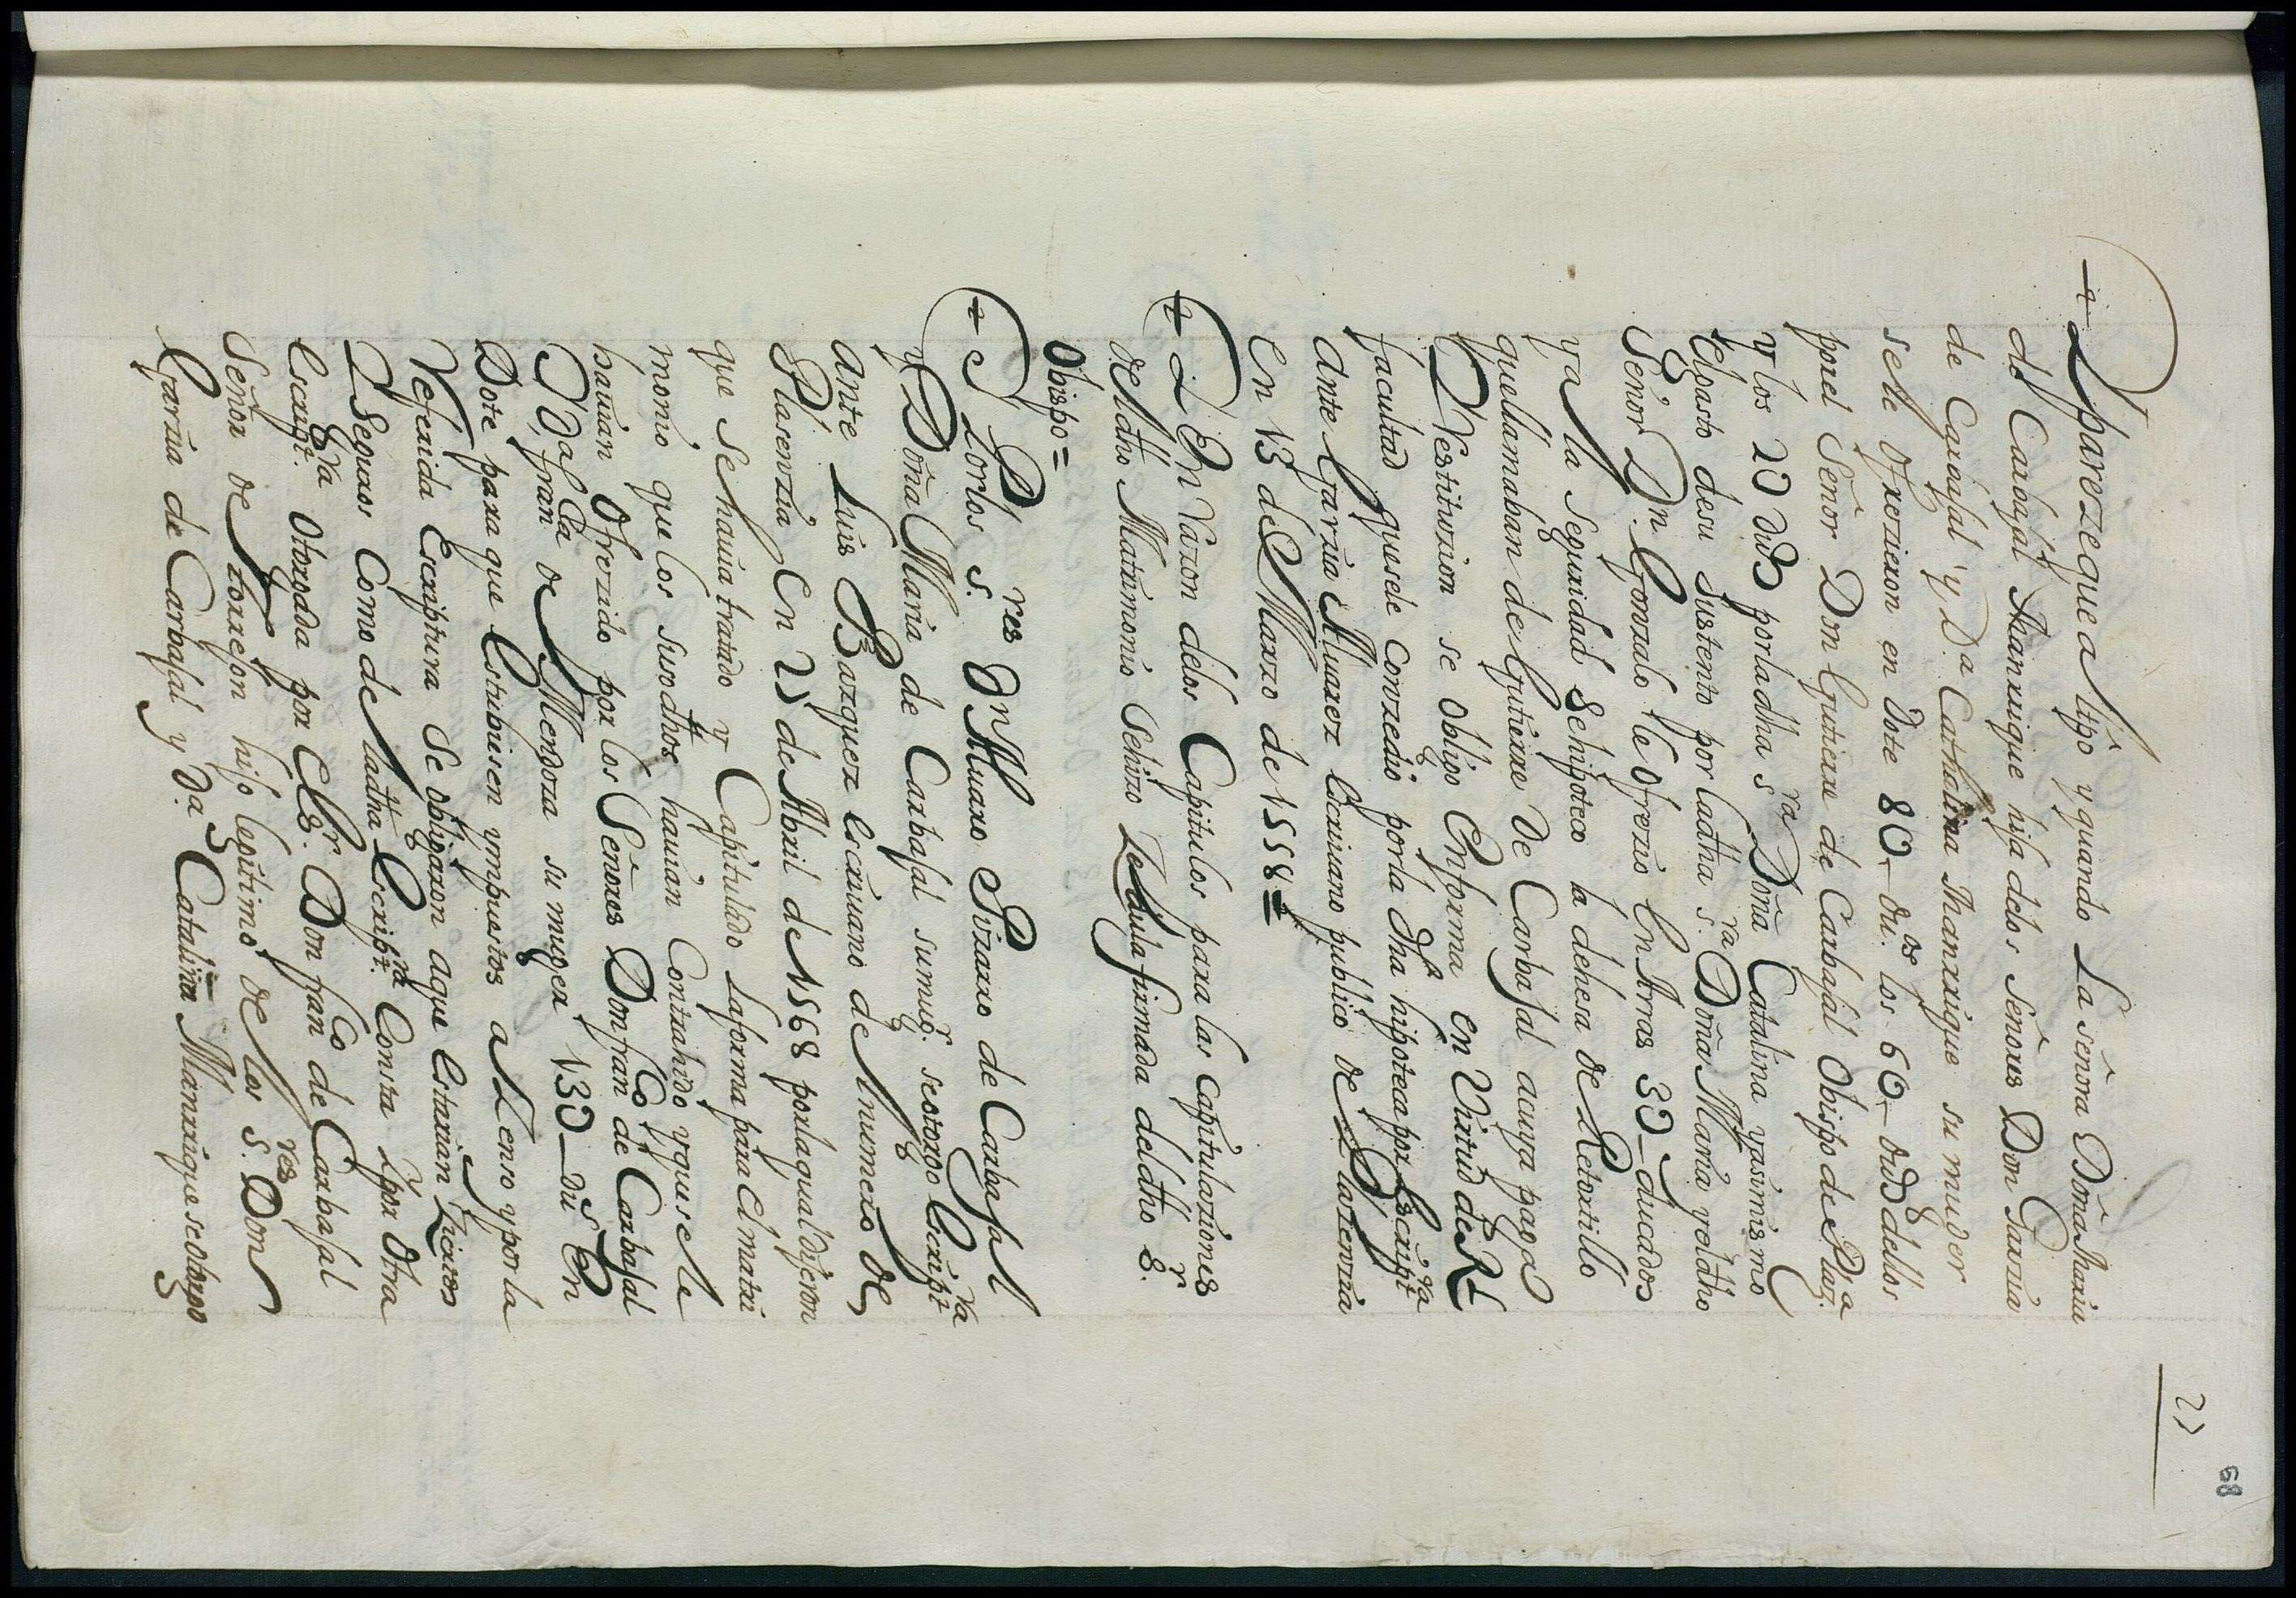 21
68
Apareze que al tipo y quando La señora Doña Maria
de Carbajal Manrrique hija delos Señores Don Garzia
de Carbajal y D.ª Cathalina Manrrique su muger
sele ofrezieron en Dote 8U_ du.os los 6U_ dud dellos
por el Señor Don Gutierre de Carbajal Obispo de Plaz.a
y los 2U dud por la dha s.ra Doña Catalina y asimismo
el gasto de su sustento por la dha s.ra Doña Maria y el dho
Señor D.n Gonzalo le ofrezio en Arras 3U_ ducados
y a la seguridad se hipoteco la dehesa de Retortillo
que llamaban de Gutierre de Carbajal a cuya paga
y Restituzion se obligo en forma en Virtud de Rl
facultad que se le conzedio por la dha hipoteca por Escript.ra
Ante Garzia Alvarez Escriuano publico de Plazenzia
en 13 de Marzo de 1558=
En Razon delos Capitulos para las Capitulaziones
del dho Matrimonio se hizo Zedula firmada del dho S.r
Obispo=
Por los s.res Dn Aluaro Pizarro de Carbajal
y Doña Maria de Carbajal su mug.r se otorgo Escript.ra
Ante Luis Bazquez escriuano del numero de
Plasenzia en 21 de Abril de 1568 por la qual dijeron
que se hauia tratado y Capitulado la forma para el matri
monio que los suso dhos hauian Contrahido y que se le
hauian Ofrezido por los Señores Don fran.co de Carbajal
y Da. fran.ca de Mendoza su muger 13U_ du.s En
Dote para que Estubiesen ympuestos a Zenso y por la
Referida Escriptura se obligaron a que Estarian Ziertos
y Seguros Como de la dha Escript.ra Consta y por Otra
Escript.ra Otorgada por El S.r Don fran.co de Carbajal
Señor de torrejon hijo legitimo de los s.res Don
Garzia de Carbajal y D.a Catalina Manrrique se otorgo